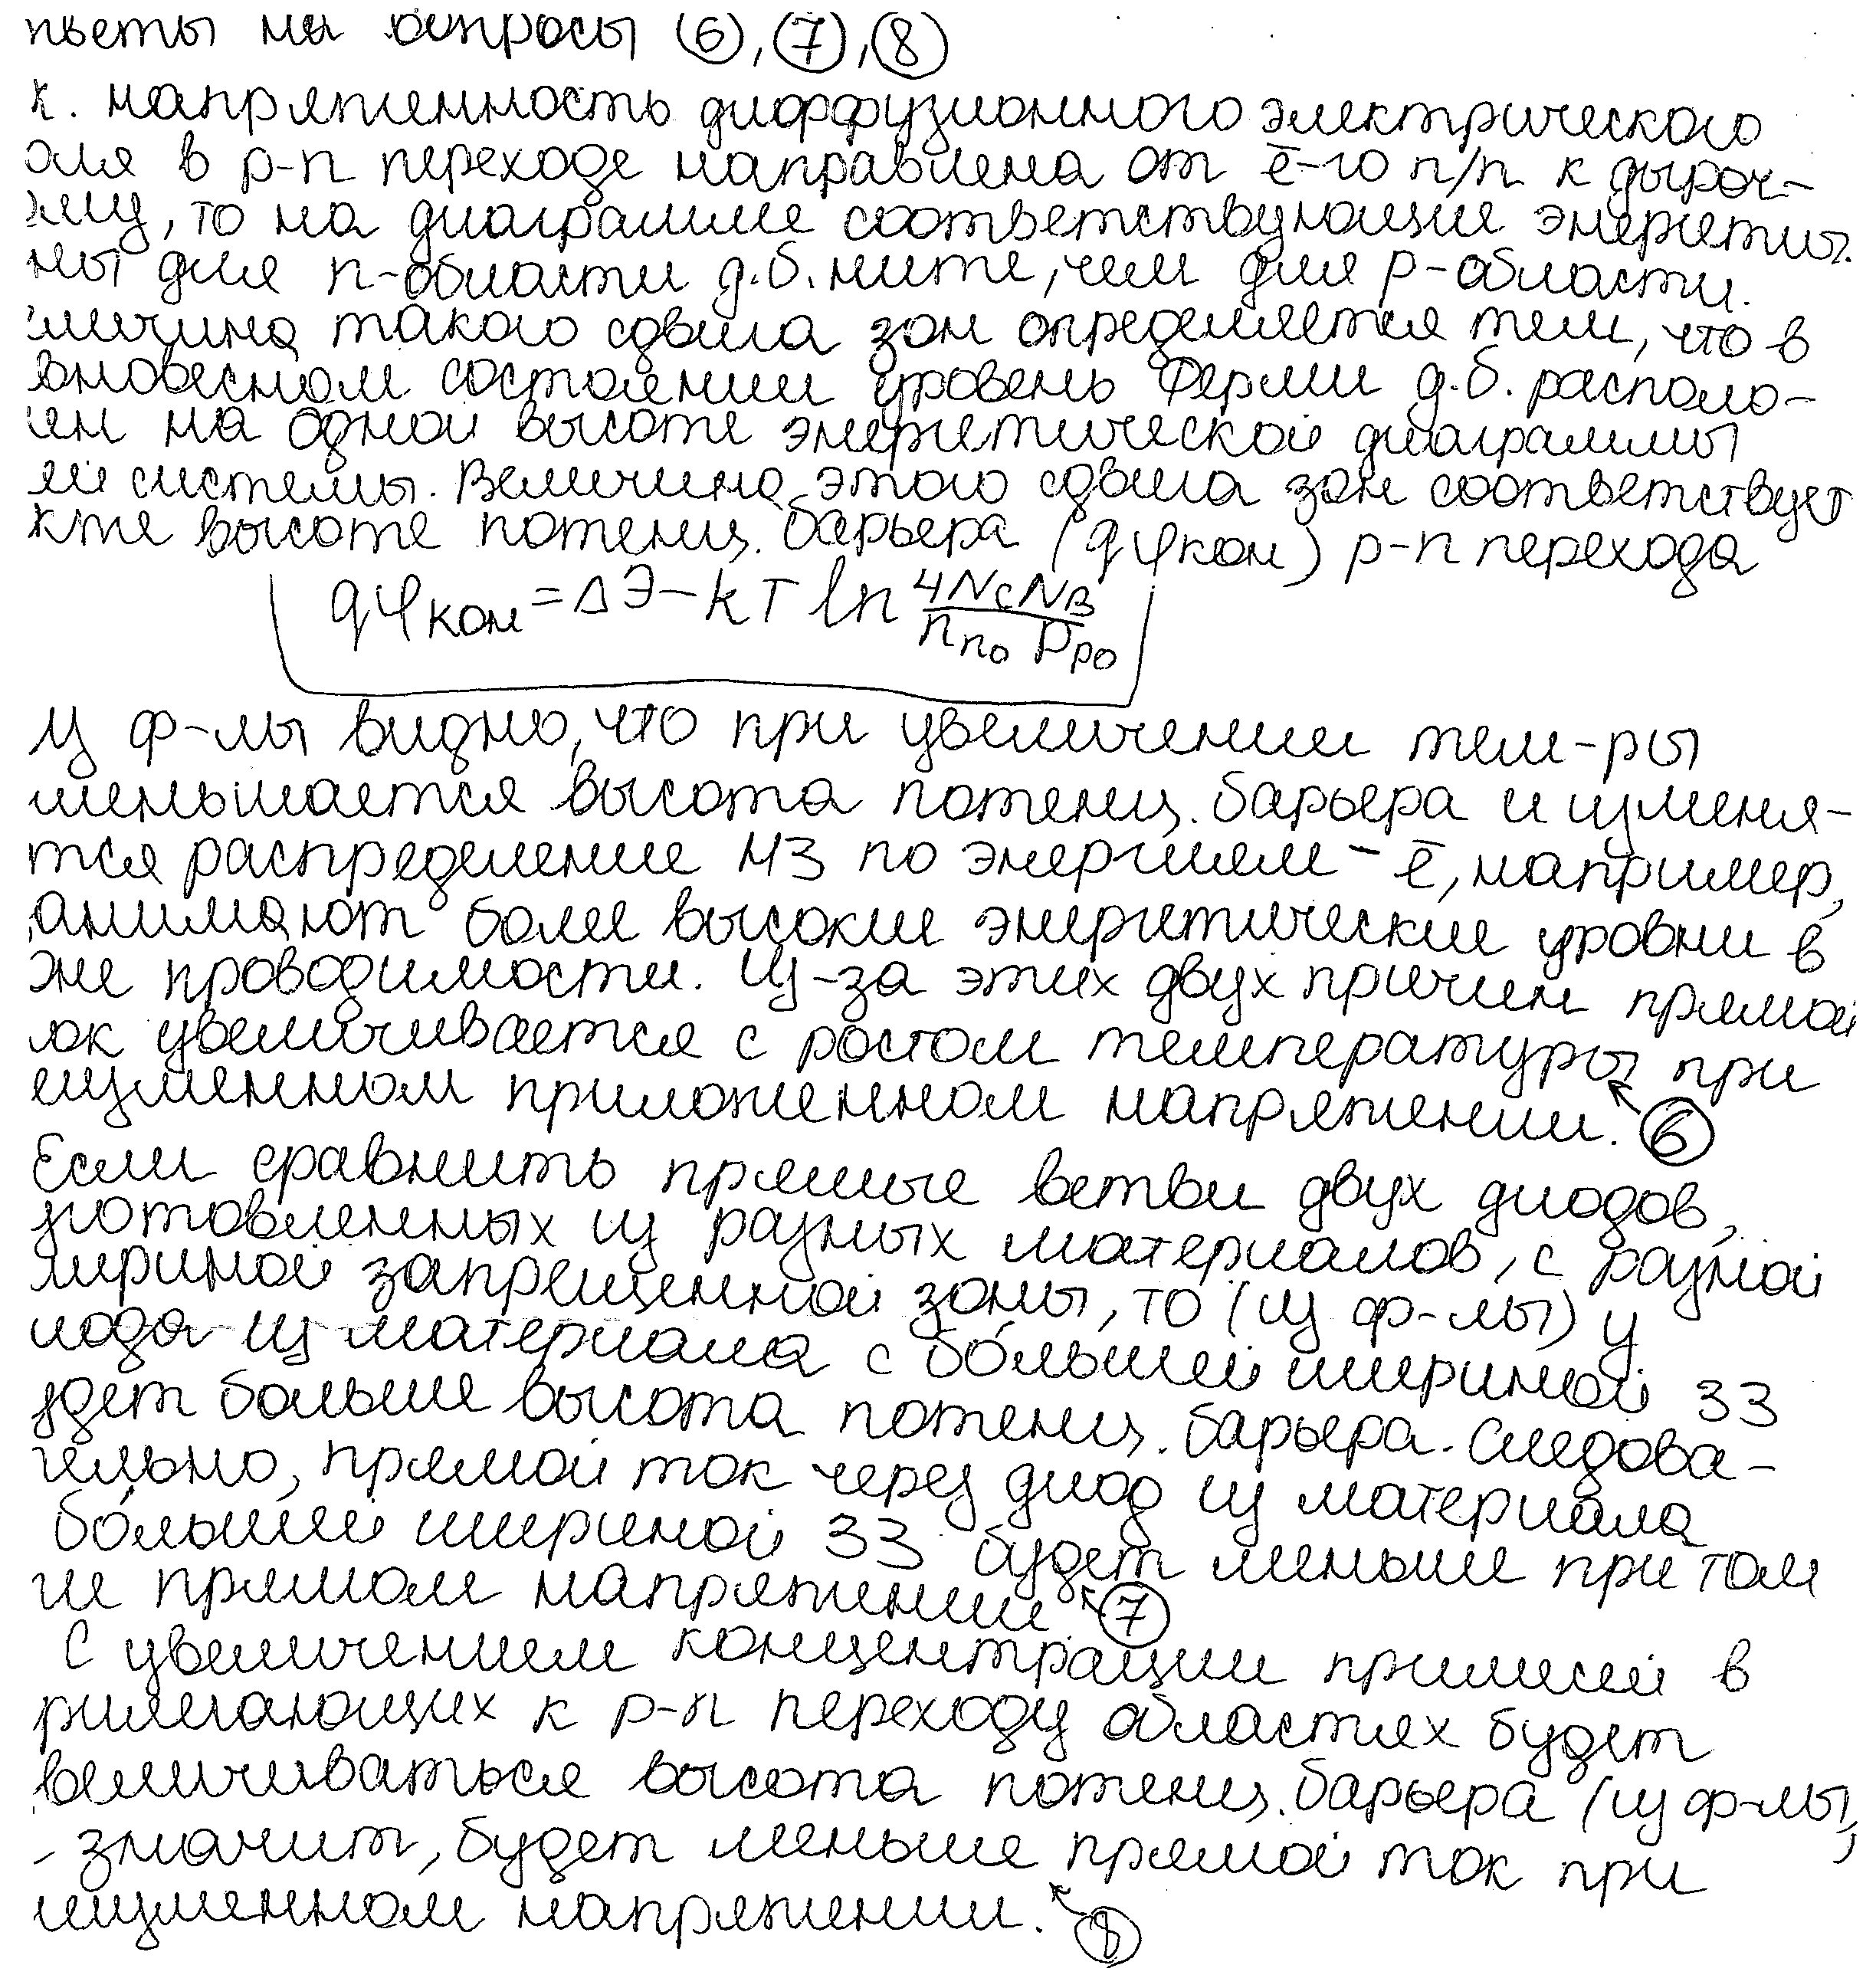 пветы на вопросы (6), (7), (8)
к. напряженность диффузионного электрического
оля в p-n переходе направлена от ē-го п/п к дыроч-
ому, то на диаграмме соответствующие энергетич.
ны для n-области д.б. ниже, чем для p-области.
личина такого сдвига зон определяется тем, что в
вновесном состоянии уровень Ферми д.б. располо-
ен на одной высоте энергетической диаграммы
ей системы. Величина этого сдвига зон соответствует
кже высоте потенц. барьера (qφкон) p-n перехода
qφкон = ΔЭ - kT ln 4NcNв / nn0 Pp0
Из ф-лы видно, что при увеличении тем-ры
меньшается высота потенц. барьера и изменя-
тся распределение НЗ по энергиям - ē, например,
анимают более высокие энергетические уровни в
не проводимости. Из-за этих двух причин прямой
ок увеличивается с ростом температуры при
еизменном приложенном напряжении. (6)
Если сравнить прямые ветви двух диодов,
зготовленных из разных материалов, с разной
ириной запрещенной зоны, то (из ф-лы) у
иода из материала с бо́льшей шириной ЗЗ
удет больше высота потенц. барьера. Следова-
тельно, прямой ток через диод из материала
бо́льшей шириной ЗЗ будет меньше при том
же прямом напряжении (7)
С увеличением концентрации примесей в
рилегающих к p-n переходу областях будет
величиваться высота потенц. барьера (из ф-лы),
- значит, будет меньше прямой ток при
еизменном напряжении. (8)